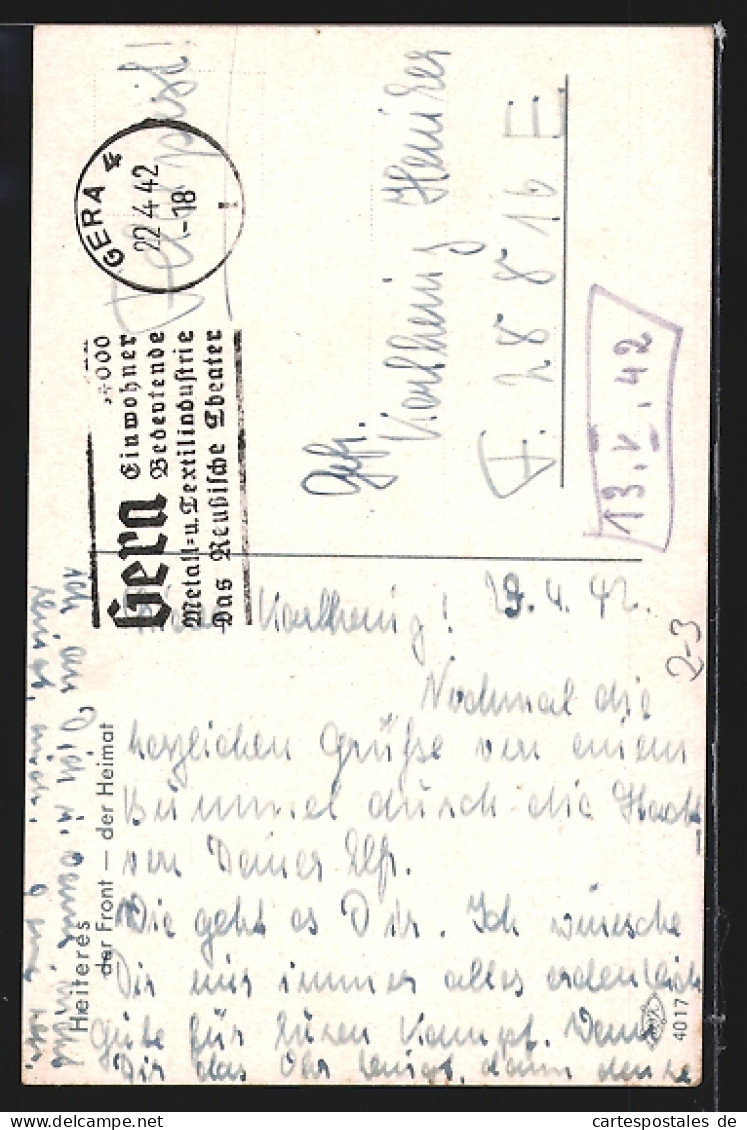 Feldpost!
GERA
22.4.42
-18
Gera
000 Einwohner
Bedeutende
Metall-u. Textilindustrie
Das Reußische Theater
Gefr.
Karlheinz
F. 28816 E
13. V. 42
2-3
Heiteres
der Front — der Heimat
4017
Karlheinz! 29.4.42.
Nochmal die
herzlichen Grüße von einem
Bummel durch die Stadt
von Deiner
Wie geht es Dir. Ich wünsche
Dir nur immer alles erdenklich
Gute für Euren Kampf. Wenn
Dir das Ohr klingt, dann denke
ich an Dich u.
cartespostales.de